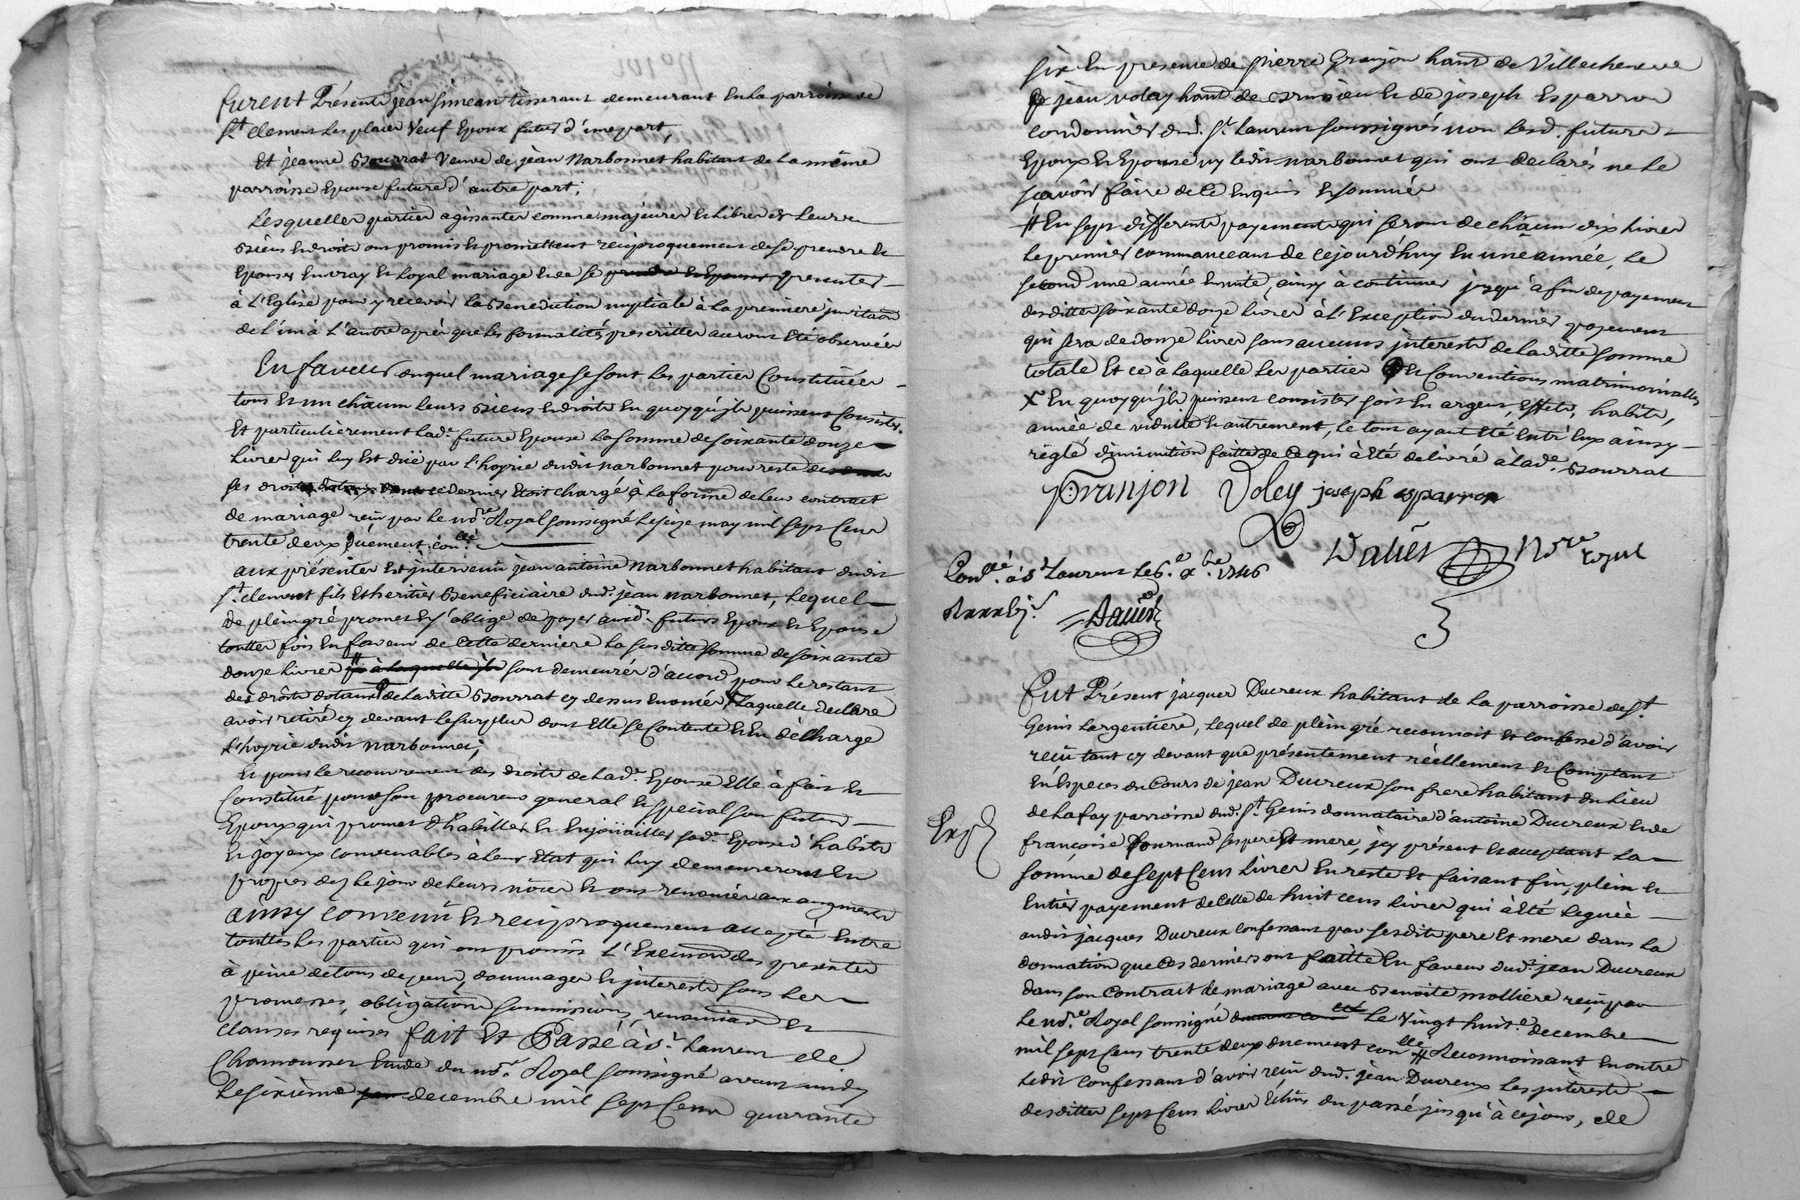 furent Présents jean simean tisserant demeurant en la parroisse de
St. clement les places veuf Epoux futur d'une part,
Et jeanne Bourrat veuve de jean Narbonnet habitant de la même
parroisse Epouse future d'autre part.
Lesquelles parties agissantes comme majeures et libres et leurs
Biens et droits ont promis et promettent reciproquement de se prendre et
Epouser en vray et loyal mariage et ce se prendre et Epouser presenter
à L'Eglise pour y recevoir la Benediction nuptiale à la premiere
de L'un à L'autre après que les formalités prescrittes auront Eté observées
En faveur duquel mariage se sont les parties Constituées
tous et un châcun leurs Biens et droits en quoy qu'jls puissent Consister.
Et particulièrement lad. future Epouse la somme de soixante douze
Livres qui luy est düe par l'hoyrie dudit narbonnet pour reste
ses droits dotaux dont ce dernier étoit chargé à la forme de leur contract
de mariage reçu par le nore. Royal soussigné le seize may mil sept cent
trente deux duement conllé
aux présentes est jntervenü jean antoine narbonnet habitant dudit
St. clement fils et heritier Beneficiaire dud. jean narbonnet, lequel
de plein gré promet et s'oblige de payer auxd. futurs Epoux et Epouse
touttes fois en faveur de cette derniere la susditte somme de soixante
douze livres # à laquelle jls sont demeurés d'accord pour le restant
des droits dotaux de laditte Bourrat cy dessus enoncés X laquelle declare
avoir retiré cy devant le surplus dont elle se contente et en décharge
L'hoyrie dudit narbonnet;
Et pour le recouvrement des droits de lad. Epouse Elle à fait et
Constitué pour son procureur general et special son futur
Epoux qui promet d'habiller et enjoüailler sad. Epouse d'habits
et joyeux convenables à leur Etat qui luy demeureront en
propres dez le jour de leurs nôces et ont renoncés aux augments
ainsy convenü et reciproquement accepté Entre
touttes les parties qui ont promis L'Execution des presentes
à peine de tous depens, dommages et jnterests sous les
promesses, obligations soumissions, renonciations et
clauses requises fait Et Passé à St. Laurent de
Chamousset Etude du nore. Royal soussigné avant midy
le sixième decembre mil sept cent quarante
six en presence de pierre Granjon habnt de Villecheneve
jean voley habnt de et de joseph Esparron
cordonnier dud. St. Laurent soussignés non lesd. futurs
Epoux et Epouse ny ledit narbonnet qui ont declarés ne le
sçavoir faire de ce enquis et sommés
# En sept differents payements qui seront de châcun dix livres
le premier commenceant de cejourd'huy en une année, le
second une année ensuite, ainsy à continuer jusqu'à fin de payement
desdittes soixante douze livres à L'Exception du dernier payement
qui sera de douze livres sans aucuns jnterests de laditte somme
totale Et ce à laquelle les parties et Conventions matrimonialles
X En quoy qu'jls puissent consister soit en argent, Effets, habits,
année de viduité et autrement, le tout ayant eté entr'eux ainsy
règlé diminution faitte de ce qui à été delivré a lad. Bourrat
Granjon Voley joseph esparron
Nore royal
Conllé. à St Laurent le 6.e xbre 1746
David
Fut Présent jacques Ducreux habitant de la parroisse de St.
Genis Largentiere, lequel de plein gré reconnoit et confesse d'avoir
reçü tant cy devant que présentement réellement et Comptant
en Especes du Cours de jean Ducreux son frere habitant du lieu
de Lafay parroisse dud. St. Genis donnataire d'antoine Ducreux et de
Exp
françoise fournand ses pere Et mere, jcy présent et acceptant la
somme de sept cens livres en reste et faisant fin, plein et
entier payement de celle de huit cens livres qui à été leguée
audit jacques Ducreux confessant par sesdits pere Et mere dans la
donnation que ces derniers ont faitte en faveur dud. jean Ducreux
dans son Contrat de mariage avec Benoite mollière reçu par
le nore. Royal soussigné le vingt huite. decembre
mil sept cens trente deux duement conllé # Reconnoissant en outre
ledit confessant d'avoir reçu dud. jean Ducreux les jnterests
desdittes sept cens livres Echus du passé jusqu'à ce jour, de